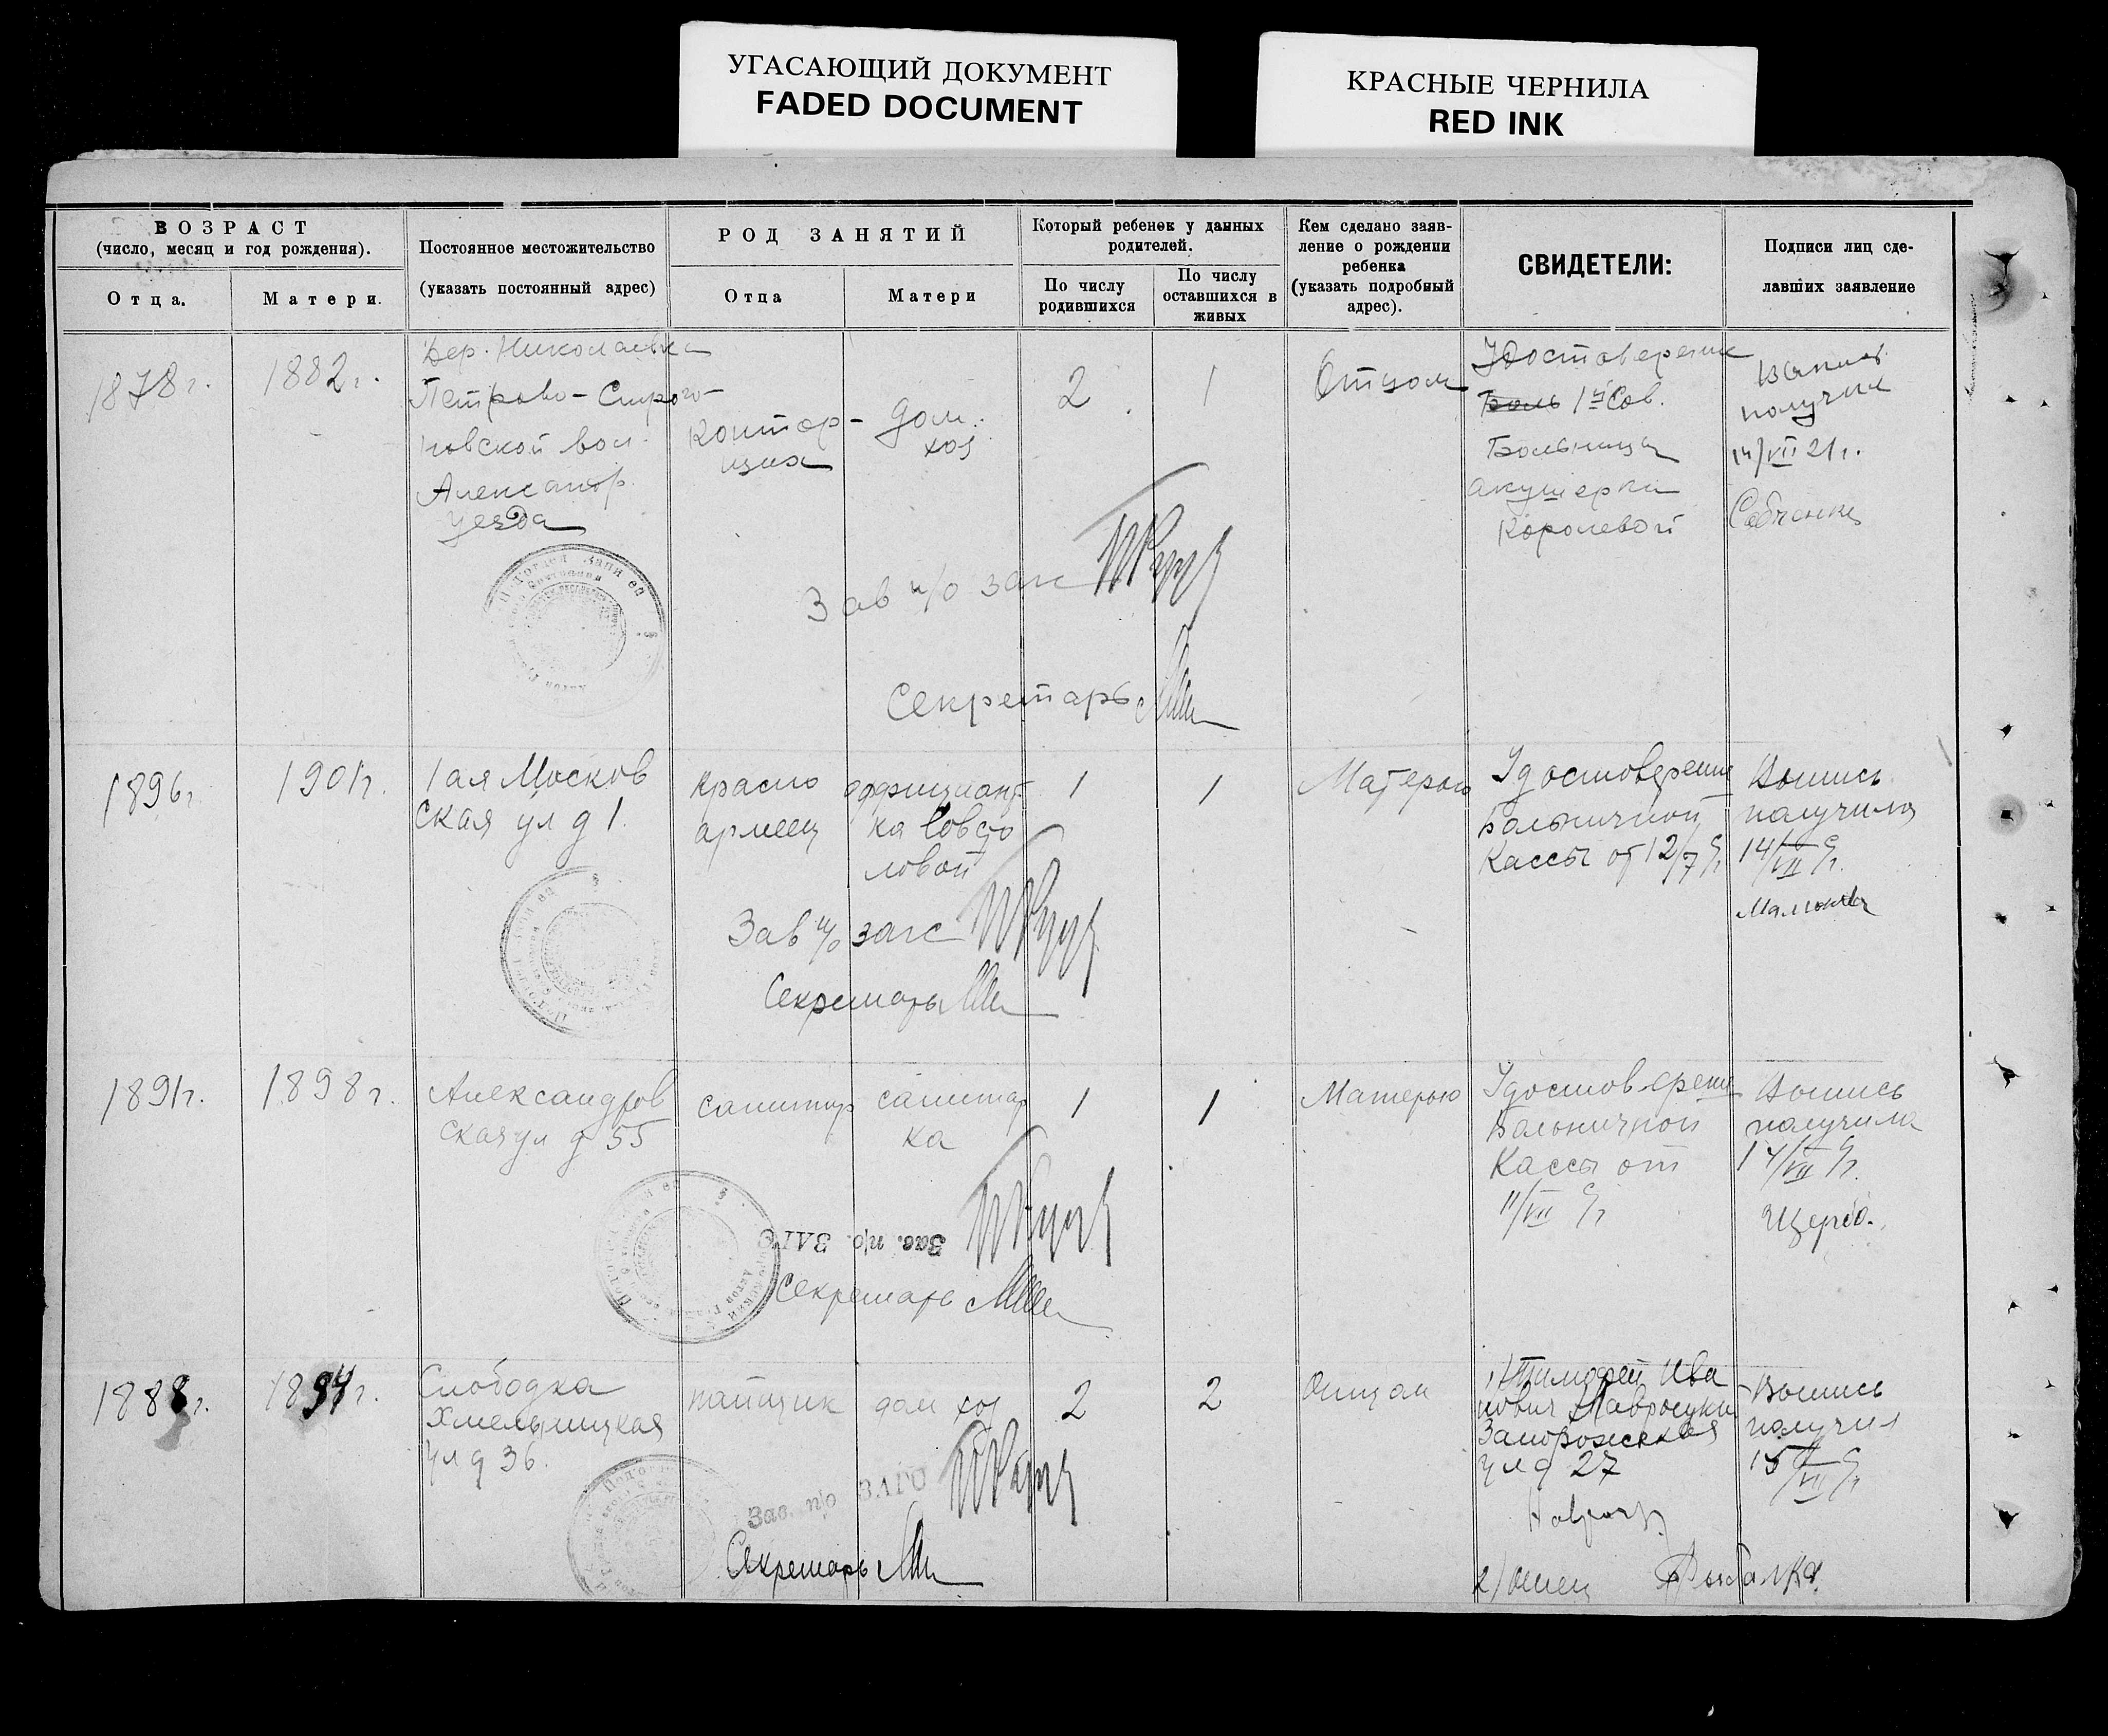 УГАСАЮЩИЙ ДОКУМЕНТ
FADED DOCUMENT
КРАСНЫЕ ЧЕРНИЛА
RED INK
ВОЗРАСТ
(число, месяц и год рождения).
Отца.
Матери.
Постоянное местожительство
(указать постоянный адрес)
РОД ЗАНЯТИЙ
Отца
Матери
Который ребенок у данных
родителей.
По числу
родившихся
По числу
оставшихся в
живых
Кем сделано заяв-
ление о рождении
ребенка
(указать подробный
адрес).
СВИДЕТЕЛИ:
Подписи лиц сде-
лавших заявление
1878г.
1882г.
Дер. Николаевка
Петрово-
новской вол.
Александр.
уезда
Контор-
щик
дом.
хоз
2
1
Отцом
Удостоверение
Боль 1й Сов.
Больницы
акушерки
Королевой
Выпись
получил
14/VII 21г.
Зав п/о загс
Секретарь
1896г
1901г.
1ая Москов
ская ул д 1.
красно
армеец
оффициант
ка Совсто
ловой
1
1
Матерью
Удостоверение
Больничной
Кассы от 12/7 с/г
Выпись
получила
14/VII с/г.
Зав п/о загс
Секретарь
1891г.
1898г.
Александров
ская ул д 55
санитар
санитар
ка
1
1
Матерью
Удостоверение
Больничной
Кассы от
11/VII с/г
Выпись
получила
14/VII с/г.
Щерб.
Зав. п/о. ЗАГС
Секретарь
1888г.
1894г.
Слободка
Хмельницкая
ул д 36.
пайщик
дом хоз
2
2
Отцом
1) Тимофей Ива
нович
Запорожская
ул д 27
2) Отец
Рыбалка
Выпись
получил
15/VII с/г
Зав. п/о ЗАГС
Секретарь